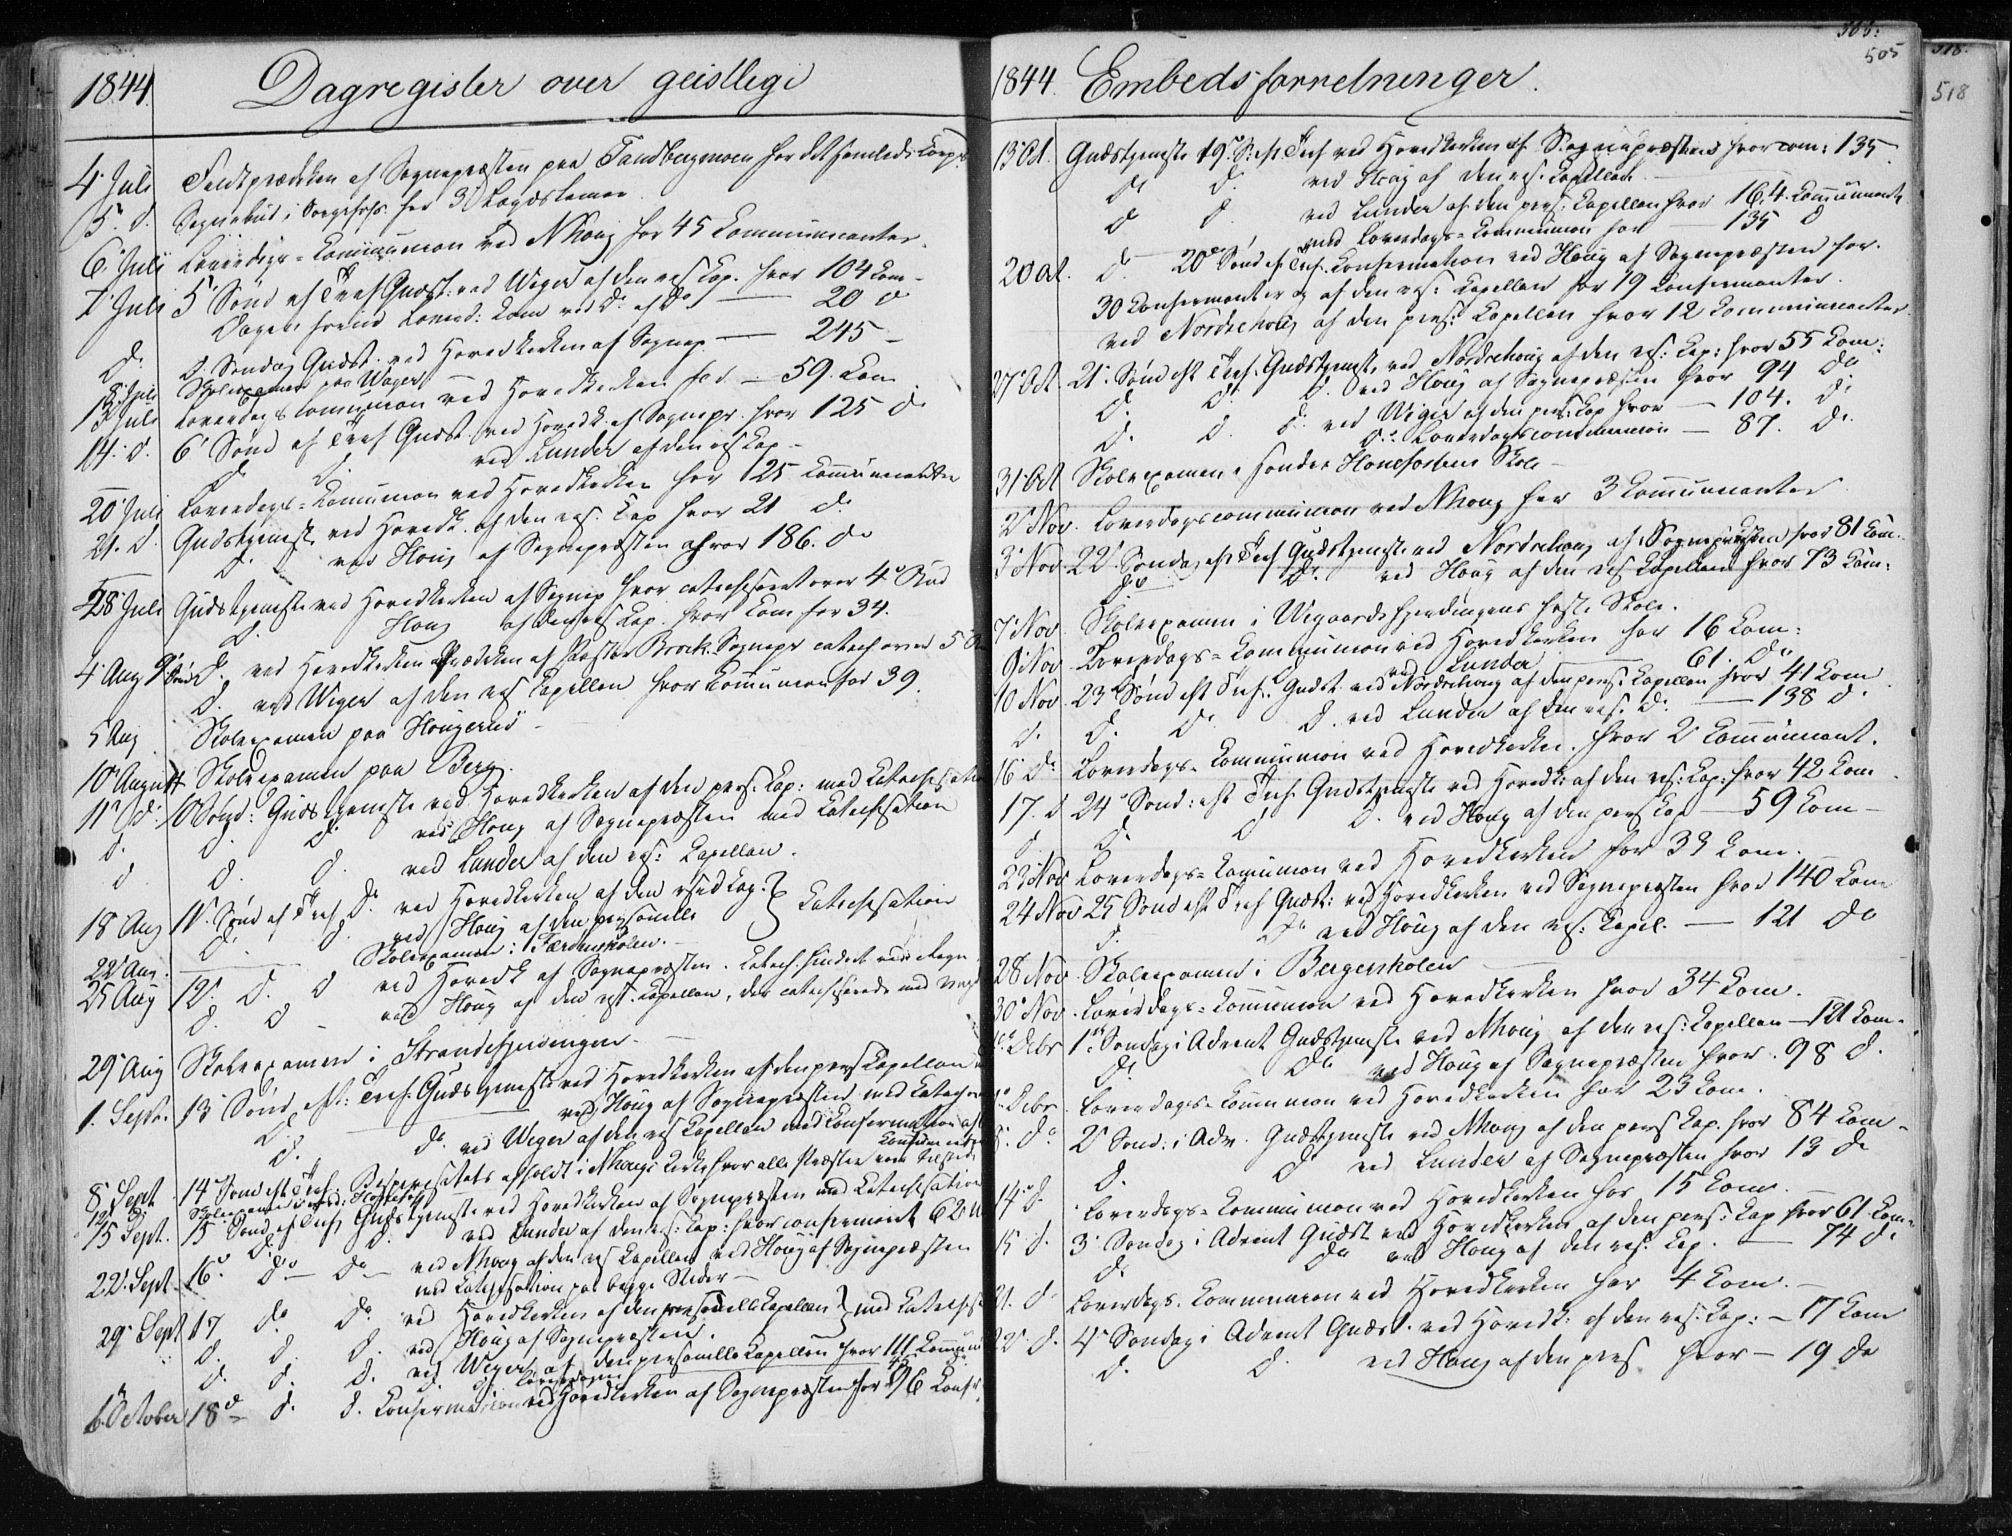 1844. Dagregister over geistlige
4 Juli Feldtprædiken af Sognepræsten paa Tandbergmoen for det samlede Corps
5 d. Sognebud i for 3 Lægdslemer
6 Juli Løverdags=Communion ved NHoug for 45 Communicanter.
7 Juli 5 Sønd ef Tref Gudst: ved Wiger af den res Cap. hvor 104 Com-
Dagen forud Løverd: Com ved do af do — 20 d
do d. Søndag Gudst. ved Hovedkirken af Sognep — 245 -
Juli Skoleexamen paa Wager
13 Juli Løverdags Communion ved Hovedkirken for — 59. Com
14. d. 6 Sønd ef Tref Gudst ved Hovedk. af Sognepr. hvor 125 d.
d. d. ved Lunder af den res Cap -
20 Juli Løverdags=Communion ved Hovedkirken for 125 Communicanter
21. d. Gudstjeneste ved Hovedk. af den res. Cap hvor 21 d.
d. ved Houg af Sognepræsten hvor 186. do
28 Juli Gudstjeneste ved Hovedkirken af Sognep hvor catechiseret over 4de Bud
d. Houg af den res Cap. hvor Com for 34.
4 Aug 9 Sønd d. ved Hovedkirken Prædiken af Pastor Brock. Sognepr catech over 5
d. ved Wiger af den res Capellan hvor Communion for 39.
5 Aug Skoleexamen paa Hougerud -
10 August Skoleexamen paa Berg.
11 d: 10 Sønd: Gudstjeneste ved Hovedkirken af den pers. Cap: med Catechisation
d. d. d. ved Houg af Sognepræsten med Catechisation
d d. d. ved Lunder af den res: Capellan.
18 Aug 11. Sønd ef Tref do. ved Hovedkirken af den resid Cap. } Catechisation
d. d. ved Houg af den personelle
22 Aug. Skoleexamen i Færdenskolen.-
25 Aug 12. d. d ved Hovedk af Sognepræsten. Catech. hindret ved Regn
d. d - ved Houg af den rest. Capellan, der catechiserede med
29 Aug Skoleexamen i Strandefjerdingen.-
1. Septr. 13 Sønd eft: Tref. Gudstjeneste ved Hovedkirken af den pers Capellan
d. ved Houg af Sognepræsten med Catech
d. do ved Weger af den res Capellan med Confirmation af
8 Sept 14 Sønd eft Tref. Bispevisitats afholdt i NHougs Kirke hvor alle Præster vare tilstede
12 d. Skoleexamen
15 Sept. 15 Sønd ef Tref Gudstjeneste ved Hovedkirken af Sognepræsten med Catechisation
d. d. ved Lunder af den res: Cap: hvor confirmeret 62
22. Sept 16. do - do - ved NHoug af den res Capellan ved Houg af Sognepræsten
med Catechisation paa begge Steder -
29 Sept 17 do do ved Hovedkirken af den personelle Capellan } med Catechis
d. d. d. ved Houg af Sognepræsten.
d. d. d. ved Weger af den personelle Capellan hvor 111 Commun
6 October 18 d d. d. Confirmation ved Hovedkirken af Sognepræsten for 96 Conf.
1844. Embedsforretninger.
505
518
13 Oct. Gudstjeneste 19 S: eft Tref ved Hovedkirken af Sognepræsten hvor com: 135
do d. ved Houg af den res: Capellan
d d. ved Lunder af den pers: Capellan hvor 164. Communicant
ved Løverdags=Communion for — 135 d
20 Oct. d. 20de Sønd ef. Tref. Confirmation ved Houg af Sognepræsten for.
30 Confirmanter og af den res: Capellan for 19 Confirmanter.
ved Nordrehoug af den pers: Capellan hvor 12 Communicanter.
27 Oct. 21. Sønd eft Tref. Gudstjeneste ved Nordrehoug af den res: Cap: hvor 55 Com:
d. d. d. ved Houg af Sognepræsten hvor 94 do
d. d. d. ved Wiger af den pers: Cap hvor — 104. do
do Løverdagscommunion — 87. do
31 Oct Skoleexamen i søndre Hønefossens Skole -
2 Nov. Løverdagscommunion ved NHoug for 3 Communicanter
3 Nov 22. Søndag eft Tref Gudstjeneste ved Nordrehoug af Sognepræsten hvor 81 Com.
do do ved Houg af den res Capellan hvor 73 Com:
7 Nov Skoleexamen i Vegaardsfjerdingens faste Skole.
9 Nov Løverdags=Communion ved Hovedkirken for 16 Com:
ved Lunder — 61. do
10 Nov. 23 Sønd eft Tref: Gudst. ved Nordrehoug af den pers: Capellan hvor 41 Com
d. d. do d. ved Lunder af den res. d. — 138 d.
16 do Løverdags. Communion ved Hovedkirken. hvor 2 Communicant.
17. d 24 Sønd: eft Tref. Gudstjeneste ved Hovedk: af den res: Cap: hvor 42 Com
d. d. d d. ved Houg af den pers Cap — 59 Com -
23 Nov Løverdags=Communion ved Hovedkirken for 33 Com.
24 Nov 25 Sønd eft Tref Gudst: ved Hovedkirken ved Sognepræsten hvor 140 Com
d. do ved Houg af den res: Capel. — 121 do
28 Nov Skoleexamen i Bergerskolen
30 Nov. Løverdags=Communion ved Hovedkirken hvor 34 Com.
Decbr 1. Søndag i Advent Gudstjeneste ved NHoug af den res: Capellan — 121 Com.
do do ved Houg af Sognepræsten hvor . 98 d.
Decbr. Løverdags=Communion ved Hovedkirken hvor 23 Com.
8. do 2 Sønd. i Adv. Gudstjeneste ved NHoug af den pers Cap. hvor 84 Com-
d. d ved Lunder af Sognepræsten hvor 13 do
14 d. Løverdags=Communion ved Hovedkirken for 15 Com.
15 d. 3 Søndag i Advent Gudst ved Hovedkirken af den pers: Cap hvor 61 Com-
d. do ved Houg af den res. Cap. — 74 d.
21. d. Løverdags. Communion ved Hovedkirken for 4 Com. -
22 d. 4 Søndag i Advent Gudst. ved Hovedk: af den res: Cap: — 17 Com
d. d. ved Houg af den pers hvor — 19 do